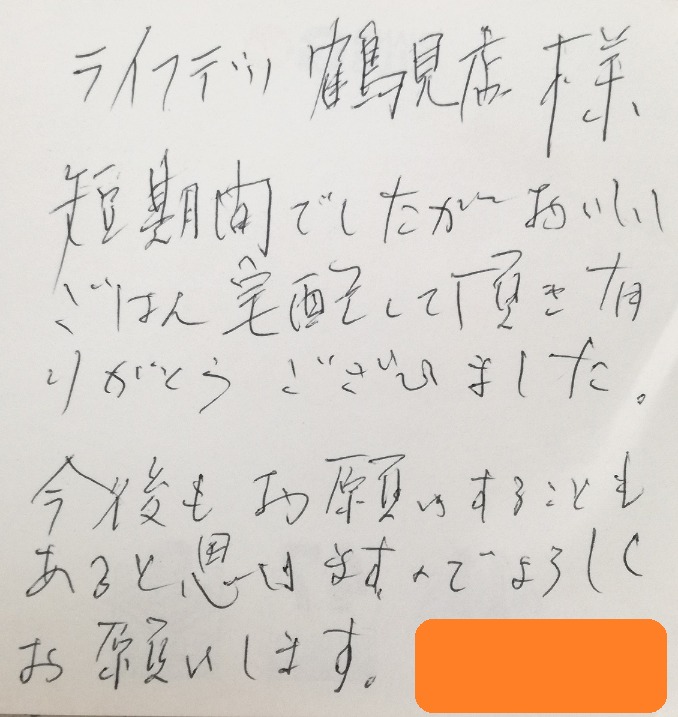 ライフデリ 鶴見店 様
短期間でしたが おいしい
ごはん宅配して頂き有
りがとうございました。
今後もお願いすることも
あると思いますのでよろしく
お願いします。